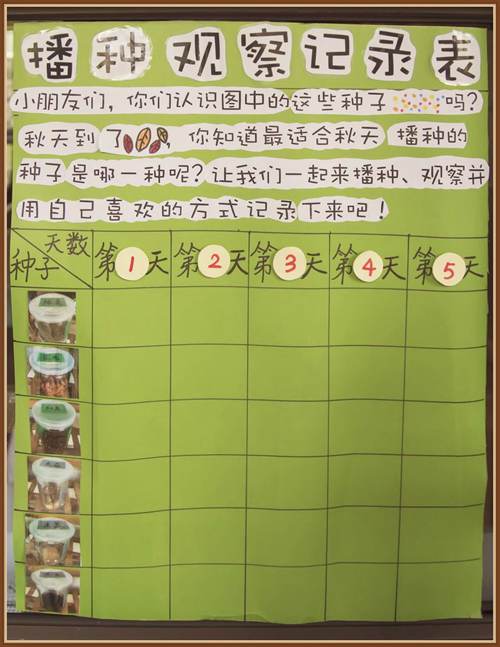 播种观察记录表
小朋友们，你们认识图中的这些种子吗？
秋天到了 你知道最适合秋天 播种的
种子是哪一种呢？让我们一起来播种、观察并
用自己喜欢的方式记录下来吧！
天数 第1天 第2天 第3天 第4天 第5天
种子